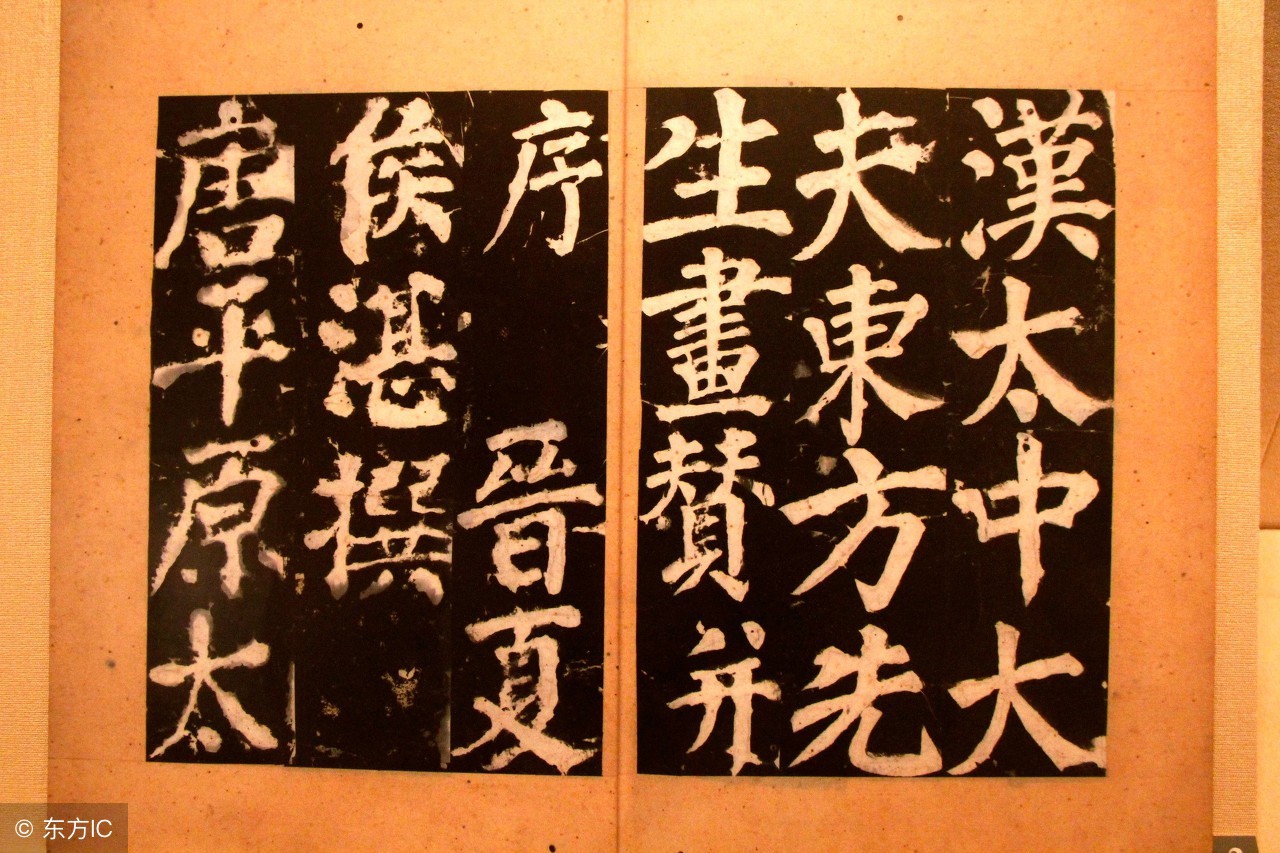 漢太中大
夫東方先
生畫賛并
序 晉夏
侯湛撰
唐平原太
© 东方IC